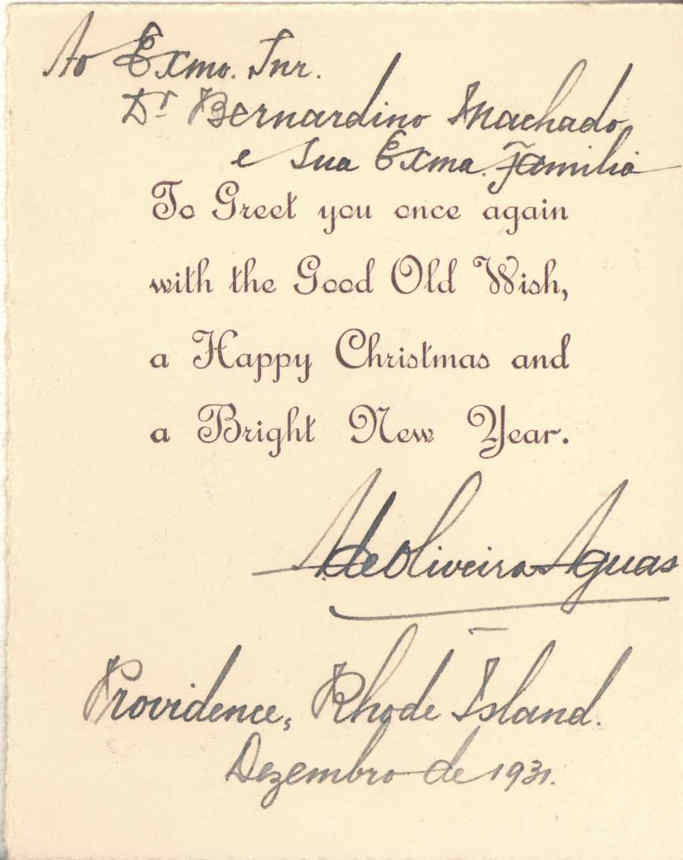 Ao Exmo. Snr.
Dr Bernardino Machado
e Sua Exma. Familia
To Greet you once again
with the Good Old Wish,
a Happy Christmas and
a Bright New Year.
A de Oliveira Aguas
Providence, Rhode Island.
Dezembro de 1931.